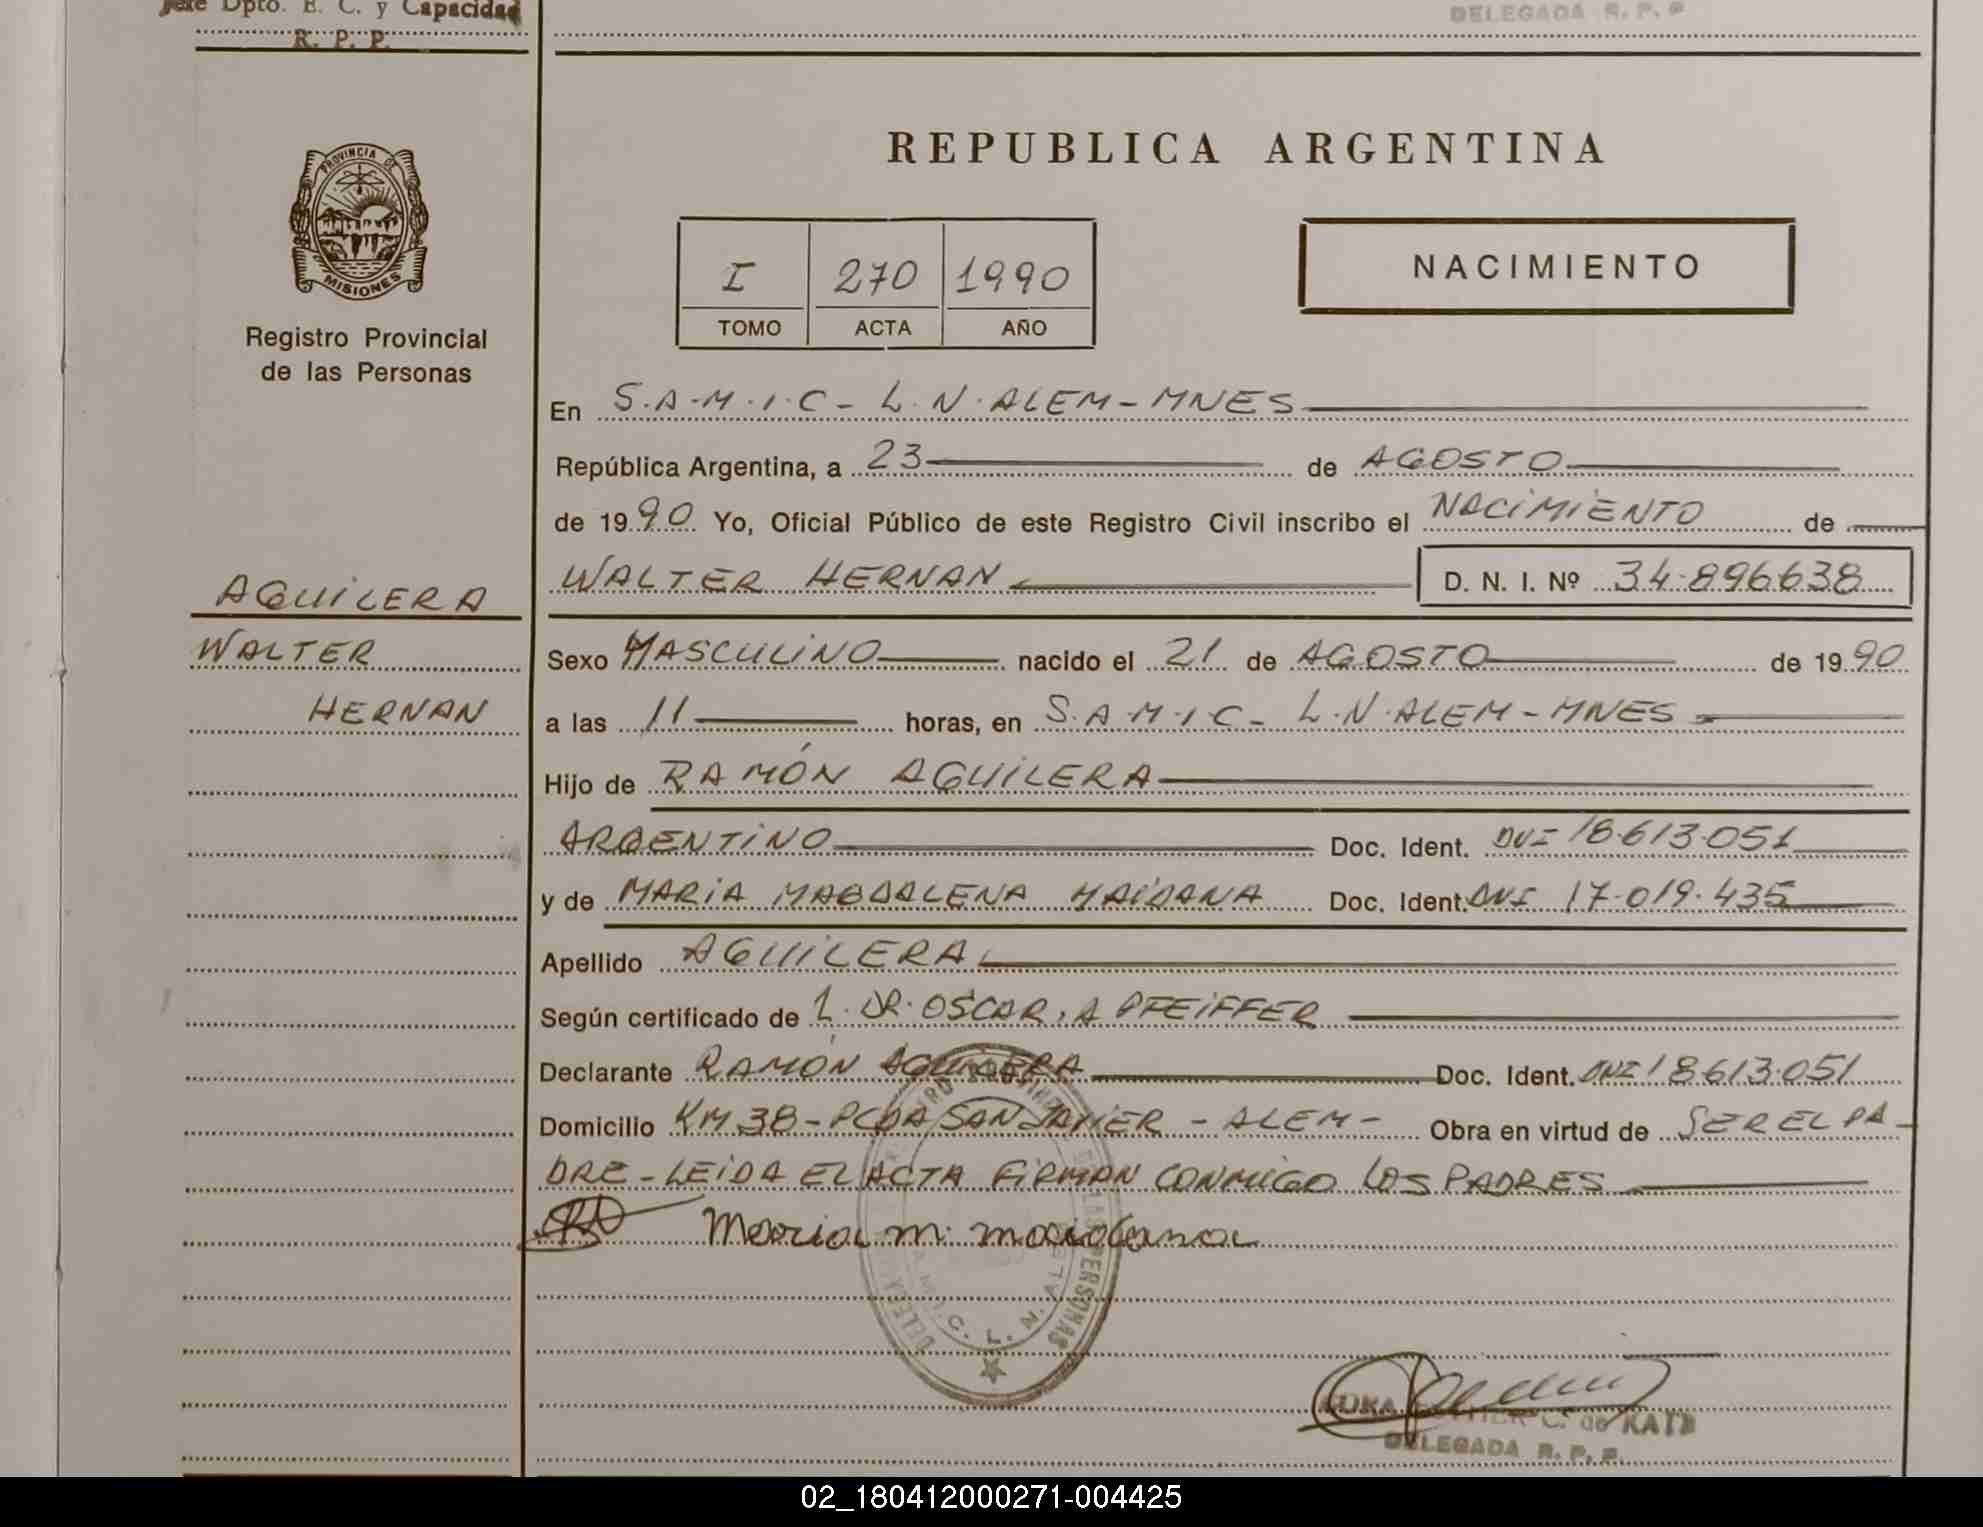 Jefe Dpto. E. C. y Capacidad
R. P. P.
DELEGADA R. P. P
PROVINCIA DE
MISIONES
Registro Provincial
de las Personas
AGUILERA
WALTER
HERNAN
REPUBLICA ARGENTINA
I 270 1990
TOMO ACTA AÑO
NACIMIENTO
En S.A.M.I.C - L.N.ALEM - MNES
República Argentina, a 23 de AGOSTO
de 1990 Yo, Oficial Público de este Registro Civil inscribo el NACIMIENTO de
WALTER HERNAN D. N. I. Nº 34.896.638
Sexo MASCULINO nacido el 21 de AGOSTO de 1990
a las 11 horas, en S.A.M.I.C - L.N.ALEM - MNES
Hijo de RAMÓN AGUILERA
ARGENTINO Doc. Ident. DNI 18.613.051
y de MARIA MAGDALENA MAIDANA Doc. Ident. DNI 17.019.435
Apellido AGUILERA
Según certificado de L. DR. OSCAR. A PFEIFFER
Declarante RAMÓN AGUILERA Doc. Ident. DNI 18.613.051
Domicilio KM 38 - PCDA SAN JAVIER - ALEM - Obra en virtud de SER EL PA-
DRE - LEIDA EL ACTA FIRMAN CONMIGO LOS PADRES
Maria m. maidana
C. L. N. AL
PERSONAS
C. de KATZ
DELEGADA R. P. P.
02_180412000271-004425